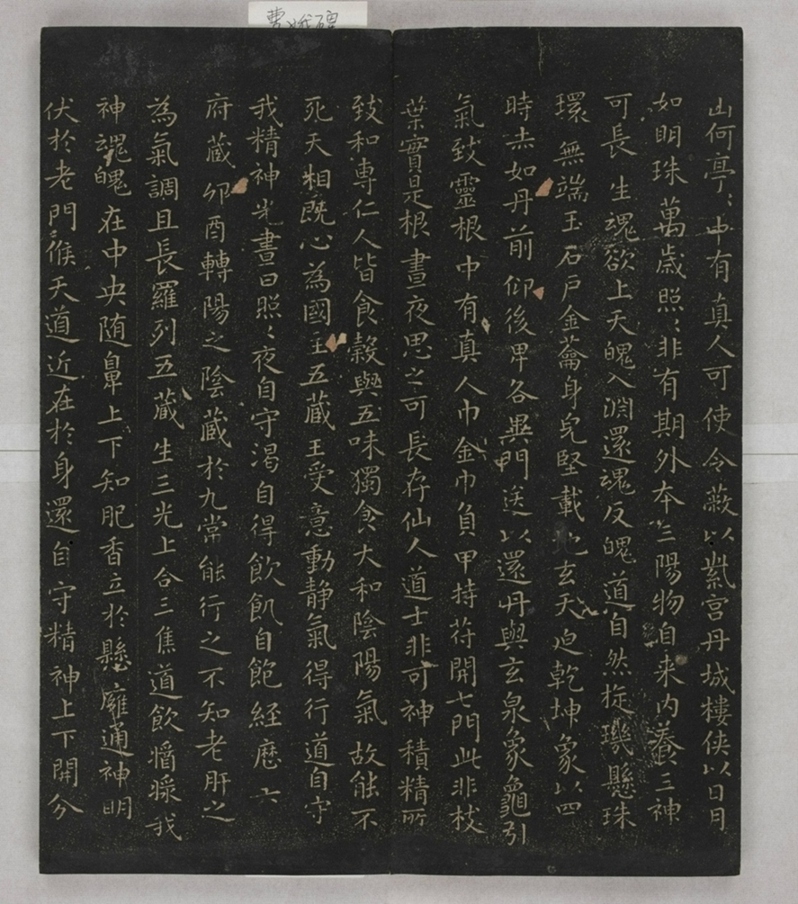 曹娥碑
山何亭〻中有真人可使令蔽以紫宫丹城樓俠以日月
如明珠萬歲照〻非有期外本三陽物自来内養三神
可長生魂欲上天魄入淵還魂反魄道自然旋璣懸珠
環無端玉石戶金蘥身皃堅載地玄天迫乾坤象以四
時赤如丹前仰後卑各異門送以還丹與玄泉象龜引
氣致靈根中有真人巾金巾負甲持苻開七門此非枝
葉實是根晝夜思之可長存仙人道士非可神積精所
致和專仁人皆食糓與五味獨食大和陰陽氣故能不
死天相旣心為國主五藏王受意動静氣得行道自守
我精神光晝日照〻夜自守渴自得飲飢自飽経歷六
府藏卯酉轉陽之陰藏於九常能行之不知老肝之
為氣調且長羅列五藏生三光上合三焦道飲醬漿我
神魂魄在中央随鼻上下知肥香立於懸廱通神明
伏於老門候天道近在於身還自守精神上下開分